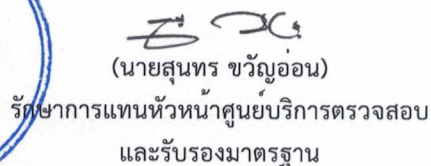 (นายสุนทร ขวัญอ่อน)
รักษาการแทนหัวหน้าศูนย์บริการตรวจสอบ
และรับรองมาตรฐาน